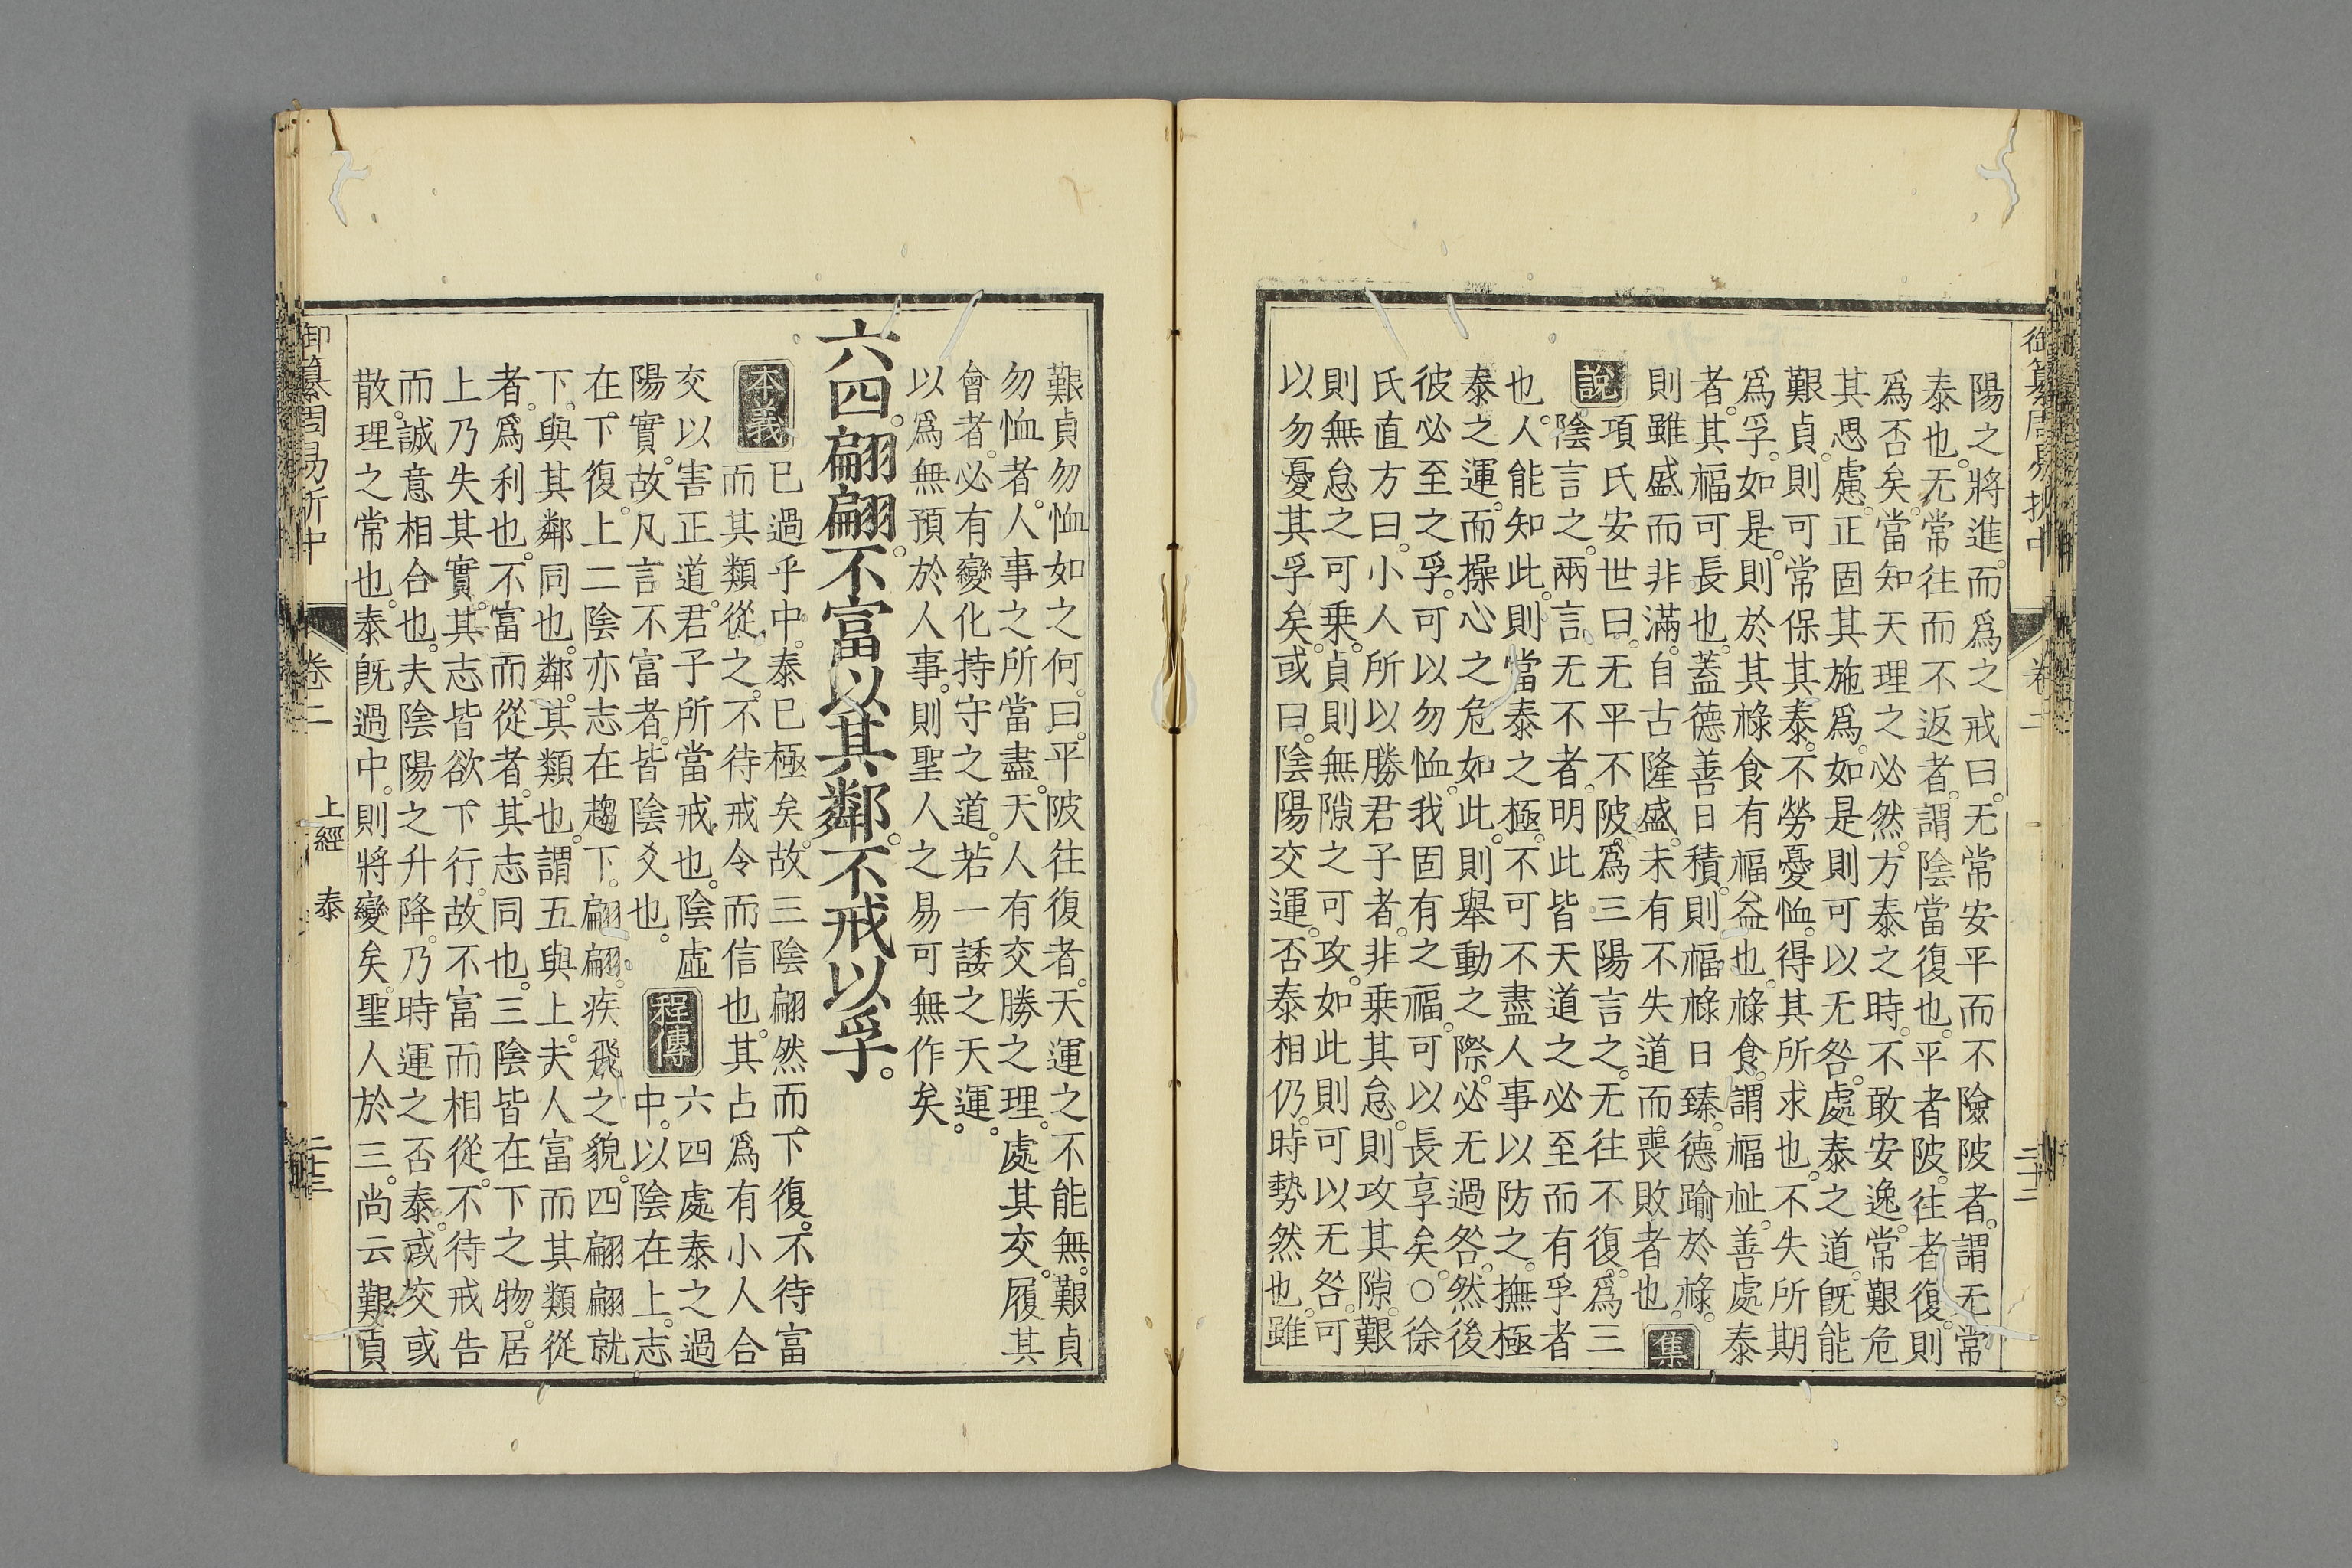 御纂周易折中 卷二 二十二
陽之將進。而爲之戒曰。无常安平而不險陂者。謂无常
泰也。无常往而不返者。謂陰當復也。平者陂。往者復。則
爲否矣。當知天理之必然。方泰之時。不敢安逸。常艱危
其思慮。正固其施爲。如是則可以无咎。處泰之道。旣能
艱貞。則可常保其泰。不勞憂恤。得其所求也。不失所期
爲孚。如是。則於其祿食有福益也。祿食。謂福祉。善處泰
者。其福可長也。蓋德善日積。則福祿日臻。德踰於祿。
則雖盛而非滿。自古隆盛。未有不失道而喪敗者也。集
說 項氏安世曰。无平不陂。爲三陽言之。无往不復。爲三
陰言之。兩言无不者。明此皆天道之必至而有孚者
也。人能知此。則當泰之極。不可不盡人事以防之。撫極
泰之運。而操心之危如此。則舉動之際。必无過咎。然後
彼必至之孚。可以勿恤。我固有之福。可以長享矣。○徐
氏直方曰。小人所以勝君子者。非乗其怠。則攻其隙。艱
則無怠之可乗。貞則無隙之可攻。如此則可以无咎。可
以勿憂其孚矣。或曰。陰陽交運。否泰相仍。時勢然也。雖
艱貞勿恤如之何。曰。平陂往復者。天運之不能無。艱貞
勿恤者。人事之所當盡。天人有交勝之理。處其交。履其
會者。必有變化持守之道。若一諉之天運。
以爲無預於人事。則聖人之易可無作矣。
六四。翩翩。不富以其鄰。不戒以孚。
本義 已過乎中。泰已極矣。故三陰翩然而下復。不待富
而其類從之。不待戒令而信也。其占爲有小人合
交以害正道。君子所當戒也。陰虛
陽實。故凡言不富者。皆陰爻也。
程傳 六四處泰之過
中。以陰在上。志
在下復。上二陰亦志在趨下。翩翩。疾飛之貌。四翩翩就
下。與其鄰同也。鄰。其類也。謂五與上。夫人富而其類從
者。爲利也。不富而從者。其志同也。三陰皆在下之物。居
上乃失其實。其志皆欲下行。故不富而相從。不待戒告
而誠意相合也。夫陰陽之升降。乃時運之否泰。或交或
散。理之常也。泰旣過中。則將變矣。聖人於三。尚云艱貞
御纂周易折中 卷二 上經 泰 二十三